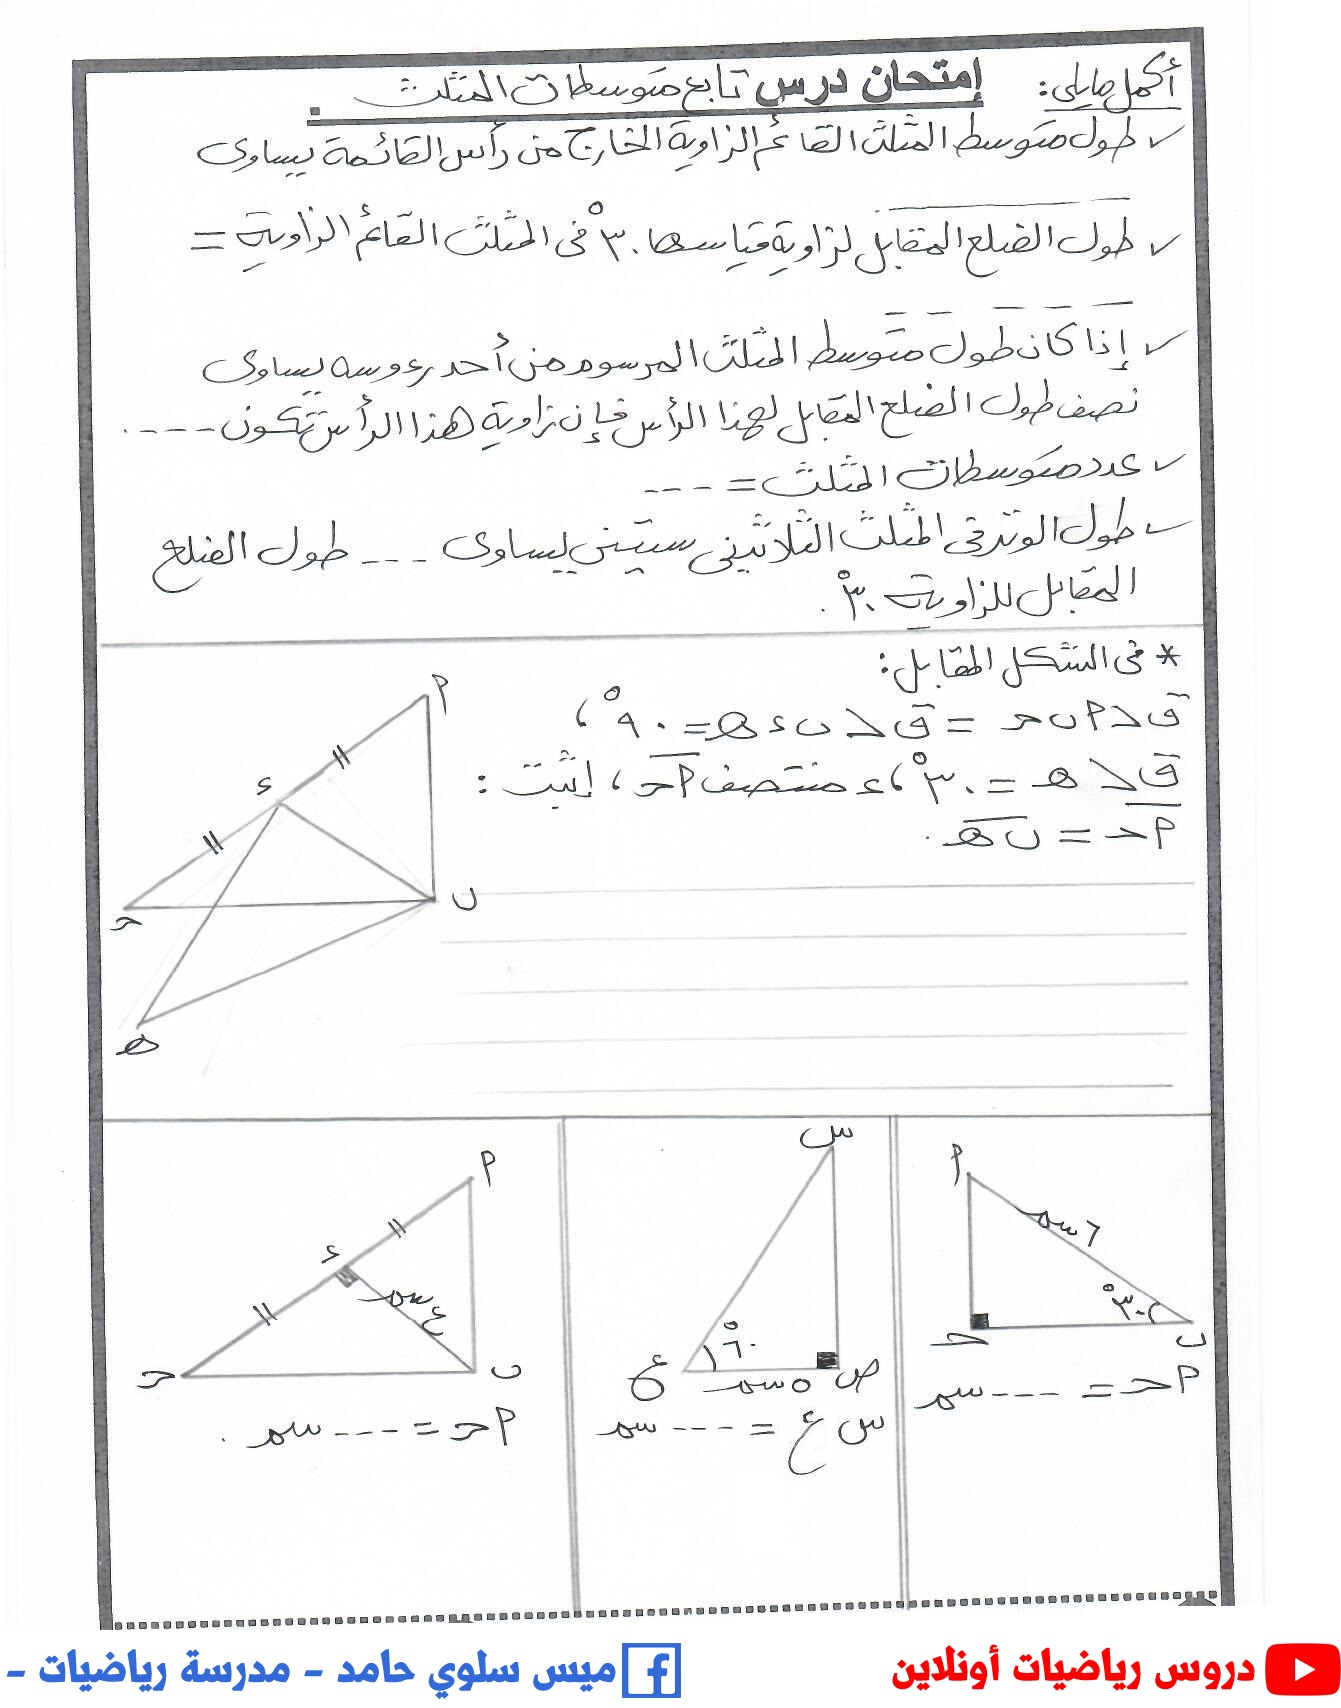 أكمل مايلى:
إمتحان درس تابع متوسطات المثلث
✓ طول متوسط المثلث القائم الزاوية الخارج من رأس القائمة يساوى
✓ طول الضلع المقابل لزاوية قياسها ٣٠° فى المثلث القائم الزاوية =
✓ إذا كان طول متوسط المثلث المرسوم من أحد رءوسه يساوى
نصف طول الضلع المقابل لهذا الرأس فإن زاوية هذا الرأس تكون ----.
✓ عدد متوسطات المثلث = ---
✓ طول الوتر فى المثلث الثلاثينى ستينى يساوى --- طول الضلع
المقابل للزاوية ٣٠°.
* فى الشكل المقابل:
ق< م ب ح = ق< ب ء ه = ٩٠° ،
ق< ه = ٣٠° ، ء منتصف م ح ، إثبت :
م ح = ب ه .
م
ء
ح
ب
ه
م
٦سم
٣٠°
ح
ب
م ح = --- سم
س
٦٠°
ع
٥سم
ص
س ع = --- سم
م
ء
٤سم
ح
ب
م ح = --- سم .
دروس رياضيات أونلاين
ميس سلوي حامد - مدرسة رياضيات -